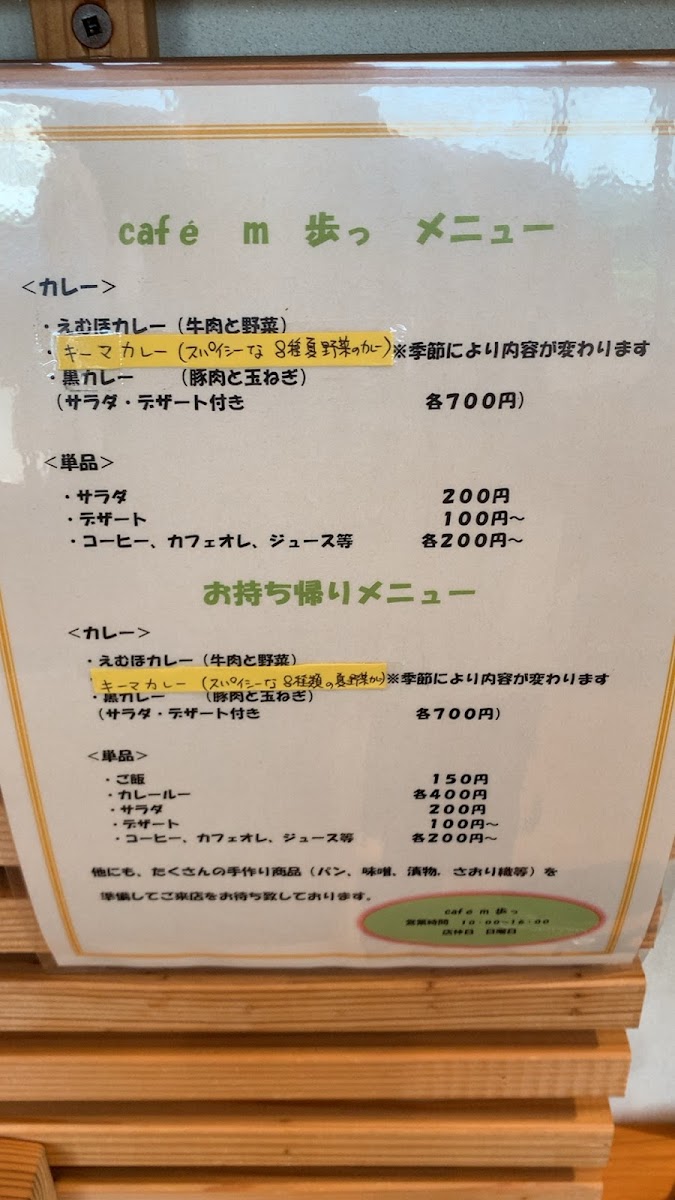 café m 歩っ メニュー
<カレー>
・えむほカレー（牛肉と野菜）
・キーマカレー（スパイシーな 8種夏野菜のカレー）※季節により内容が変わります
・黒カレー （豚肉と玉ねぎ）
（サラダ・デザート付き 各700円）
<単品>
・サラダ 200円
・デザート 100円～
・コーヒー、カフェオレ、ジュース等 各200円～
お持ち帰りメニュー
<カレー>
・えむほカレー（牛肉と野菜）
キーマカレー（スパイシーな 8種類の夏野菜カレー）※季節により内容が変わります
・黒カレー （豚肉と玉ねぎ）
（サラダ・デザート付き 各700円）
<単品>
・ご飯 150円
・カレールー 各400円
・サラダ 200円
・デザート 100円～
・コーヒー、カフェオレ、ジュース等 各200円～
他にも、たくさんの手作り商品（パン、味噌、漬物、さおり織等）を
準備してご来店をお待ち致しております。
café m 歩っ
営業時間 10:00~16:00
店休日 日曜日